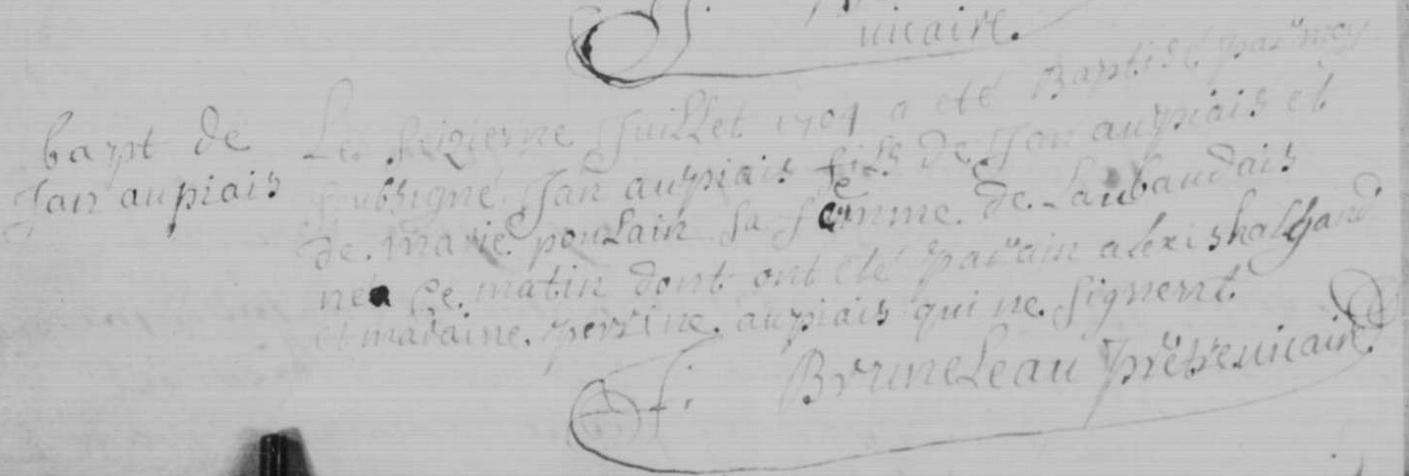 vicaire.
bapt de
Jan aupiais
Le seizieme Juillet 1704 a eté Baptisé par moy
soubsigné Jan aupiais fils de Jan aupiais et
de marie poulain sa femme de Laubaudais
né ce matin dont ont eté parain alexis halgand
et maraine perrine aupiais qui ne signent
f. Bruneleau prêtre vicaire